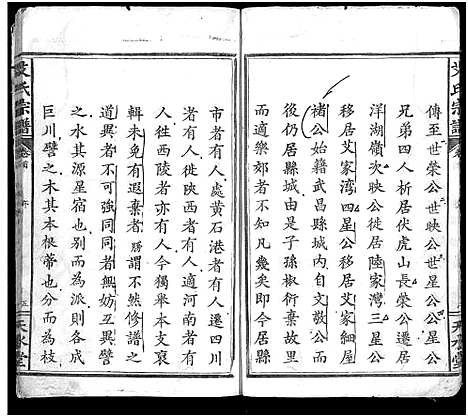 艾氏宗譜
天水堂
傳至世榮公世映公世星公公
兄弟四人析居伏虎山長榮公
洋湖嶺次映公徙居陸家灣三星公
移居艾家灣四星公移居艾家細屋
禇公始籍武昌縣城內自文敬公
居於縣城由是子孫椒衍間有徙居
而適樂郊者不知凡幾矣即今居縣
市者有人處黄石港者有人遷四川
者有人徙陝西者有人適河南者有
人往西陵者亦有人今獨舉本支裒
輯未免有遐棄者勝謂不然修譜之
道異者不可強同同者無妨互異譬
之水其源星宿也別而為派則各成
巨川譬之木其本根蒂也分而為枝
艾氏宗譜
卷首
序
五
天水堂